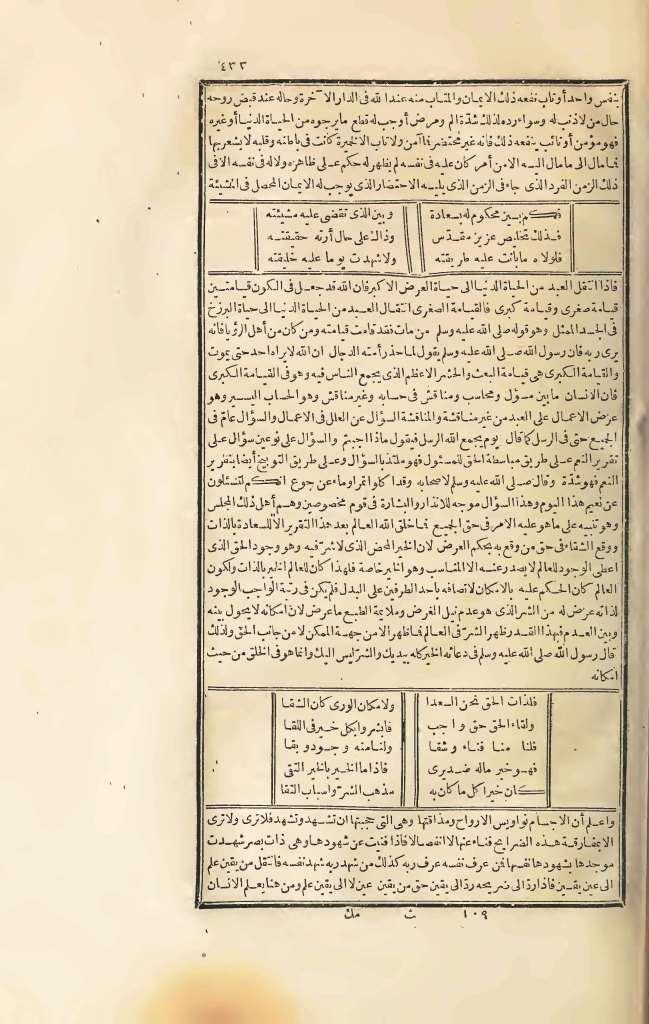 ٤٣٣
بنفس واحد أو تاب نفعه ذلك الايمان والمتاب منه عند الله في الدار الآخرة وحاله عند قبض روحه
حال من لا ذنب له وسواء رده لذلك شدة ألم ومرض أوجب له قطع ما يرجوه من الحياة الدنيا أو غيره
فهو مؤمن أو تائب ينفعه ذلك فانه غير محتضر فما آمن ولا تاب الا لخيرة كانت في باطنه وقلبه لا يشعر بها
فما مال الى ما مال اليه الا من أمر كان عليه في نفسه لم يظهر له حكم على ظاهره ولا له في نفسه الا في
ذلك الزمن الفرد الذي جاء في الزمن الذي يليه الاحتضار الذي يوجب له الايمان المحصل في المشيئة
فكم بين محكوم له بسعادة وبين الذي تقضى عليه مشيئته
فذلك تخليص عزيز مقدس وذاك على حال أرته حقيقته
فلولاه ما بانت عليه طريقته ولا شهدت يوما عليه خليقته
فاذا انتقل العبد من الحياة الدنيا الى حياة العرض الاكبر فان الله قد جعل في الكون قيامتين
قيامة صغرى وقيامة كبرى فالقيامة الصغرى انتقال العبد من الحياة الدنيا الى حياة البرزخ
في الجسد الممثل وهو قوله صلى الله عليه وسلم من مات فقد قامت قيامته ومن كان من أهل الرؤيا فانه
يرى ربه فان رسول الله صلى الله عليه وسلم يقول لما حذر أمته الدجال ان الله لا يراه احد حتى يموت
والقيامة الكبرى هي قيامة البعث والحشر الاعظم الذي يجمع الناس فيه وهو في القيامة الكبرى
فان الانسان ما بين مسؤل ومحاسب ومناقش في حسابه وغير مناقش وهو الحساب اليسير وهو
عرض الاعمال على العبد من غير مناقشة والمناقشة السؤال عن العلل في الاعمال والسؤال عام في
الجميع حتى في الرسل كما قال يوم يجمع الله الرسل فيقول ماذا اجبتم والسؤال على نوعين سؤال على
تقرير النعم على طريق مباسطة الحق للمسئول فهو ملتذ بالسؤال وعلى طريق التوبيخ أيضا بتقرير
النعم فهو شدة وقال صلى الله عليه وسلم لاصحابه وقد اكلوا تمرا وماء عن جوع انكم لتسئلون
عن نعيم هذا اليوم وهذا السؤال موجه للانذار والبشارة في قوم مخصوصين وهم أهل ذلك المجلس
وهو تنبيه على ما هو عليه الامر في حق الجميع فما خلق الله العالم بعد هذا التقرير الا للسعادة بالذات
ووقع الشقاء في حق من وقع به بحكم العرض لان الخير المحض الذي لا شر فيه وهو وجود الحق الذي
اعطى الوجود للعالم لا يصدر عنه الا المناسب وهو الخير خاصة فلهذا كان للعالم الخير بالذات ولكون
العالم كان الحكم عليه بالامكان لاتصافه باحد الطرفين على البدل فلم يكن في رتبة الواجب الوجود
لذاته عرض له من الشر الذي هو عدم نيل الغرض وملايمة الطبع ما عرض لان امكانه لا يحول بينه
وبين العدم فبهذا القدر ظهر الشر في العالم فما ظهر الا من جهة الممكن لا من جانب الحق ولذلك
قال رسول الله صلى الله عليه وسلم في دعائه الخير كله بيديك والشر ليس اليك وانما هو في الخلق من حيث
امكانه
فلذات الحق نحن السعدا ولامكان الورى كان الشقا
ولقاء الحق حق واجب فابشروا بكل خير في اللقا
فلنا منا فناء وشقا ولنا منه وجود وبقا
فهو خير ماله ضد يرى فاذا ما الخير بالخير التقى
كان خيرا كل ما كان به مذهب الشر واسباب التقا
واعلم أن الاجسام نواويس الارواح ومذاقتها وهي التي حجبتها ان تشهد وتشهد فلا ترى ولا ترى
الا بمفارقة هذه الضرايح فناء عنها لا انفصالا فاذا فنيت عن شهودها وهي ذات بصر شهدت
موجدها بشهودها نفسها فمن عرف نفسه عرف ربه كذلك من شهد ربه شهد نفسه فانتقل من يقين علم
الى عين يقين فاذا رد الى ضريحه رد الى يقين حق من يقين عين لا الى يقين علم ومن هنا يعلم الانسان
١٠٩ ث مك